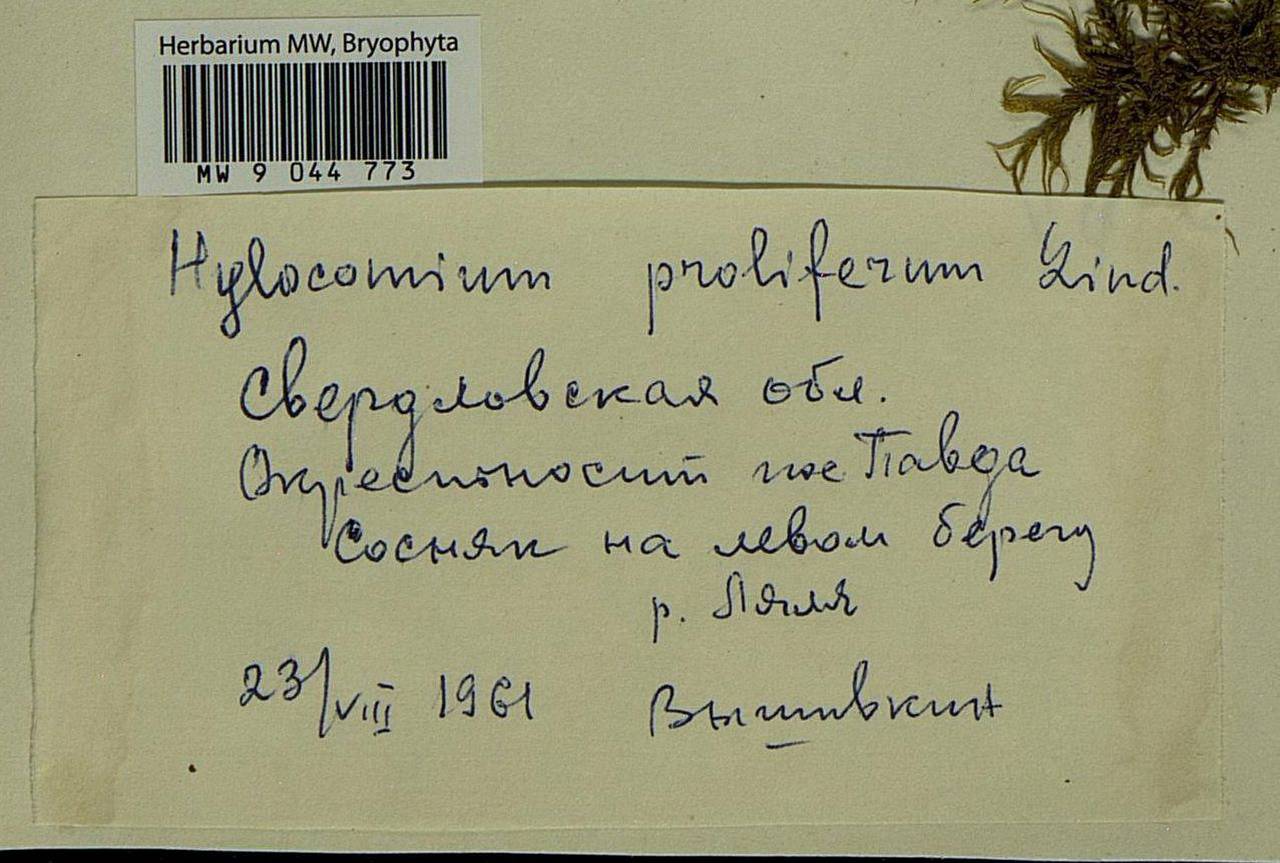 Herbarium MW, Bryophyta
MW 9 044 773
Hylocomium proliferum Lind.
Свердловская обл.
Окрестности пос Павда
Сосняк на левом берегу
р. Ляля
23/VIII 1961 Вышивкин